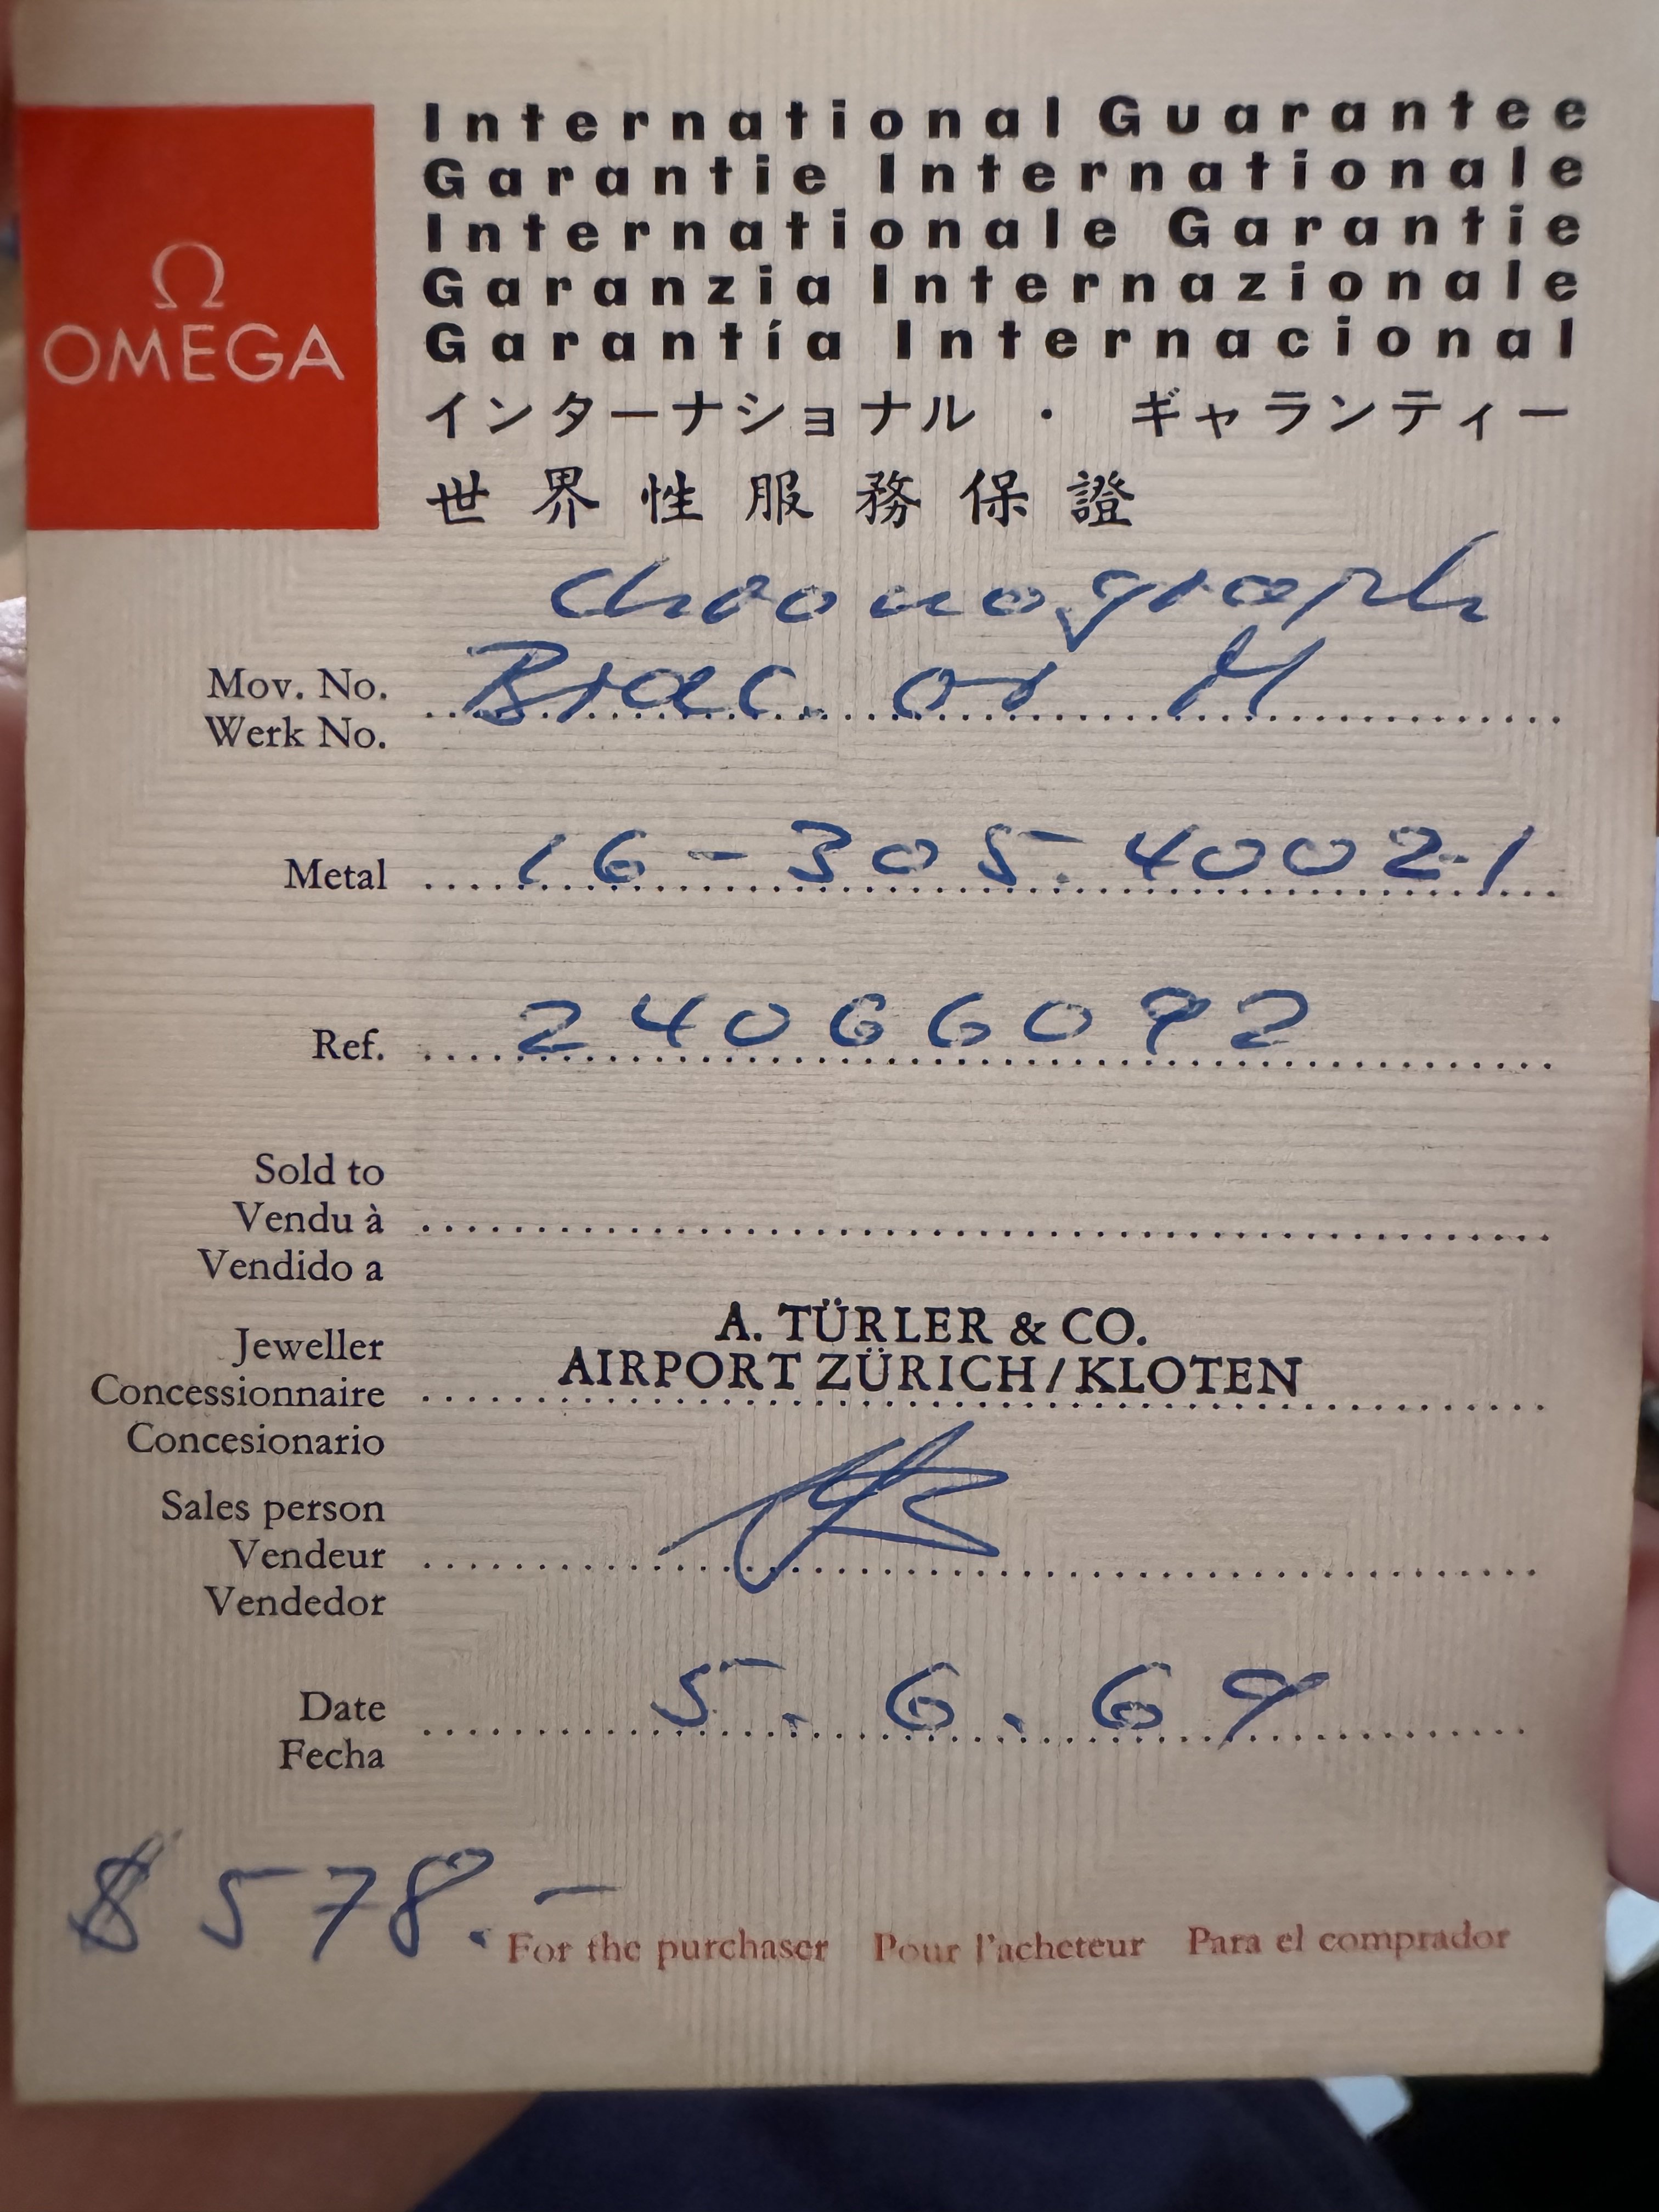 Ω
OMEGA
International Guarantee
Garantie Internationale
Internationale Garantie
Garanzia Internazionale
Garantía Internacional
インターナショナル・ギャランティー
世界性服務保證
Chronograph
Mov. No.
Werk No.
Brac. or M
Metal 16-305.4002-1
Ref. 24066092
Sold to
Vendu à
Vendido a
Jeweller
Concessionnaire
Concesionario
A. TÜRLER & CO.
AIRPORT ZÜRICH/KLOTEN
Sales person
Vendeur
Vendedor
Date
Fecha
5.6.69
$ 578.-
For the purchaser Pour l'acheteur Para el comprador